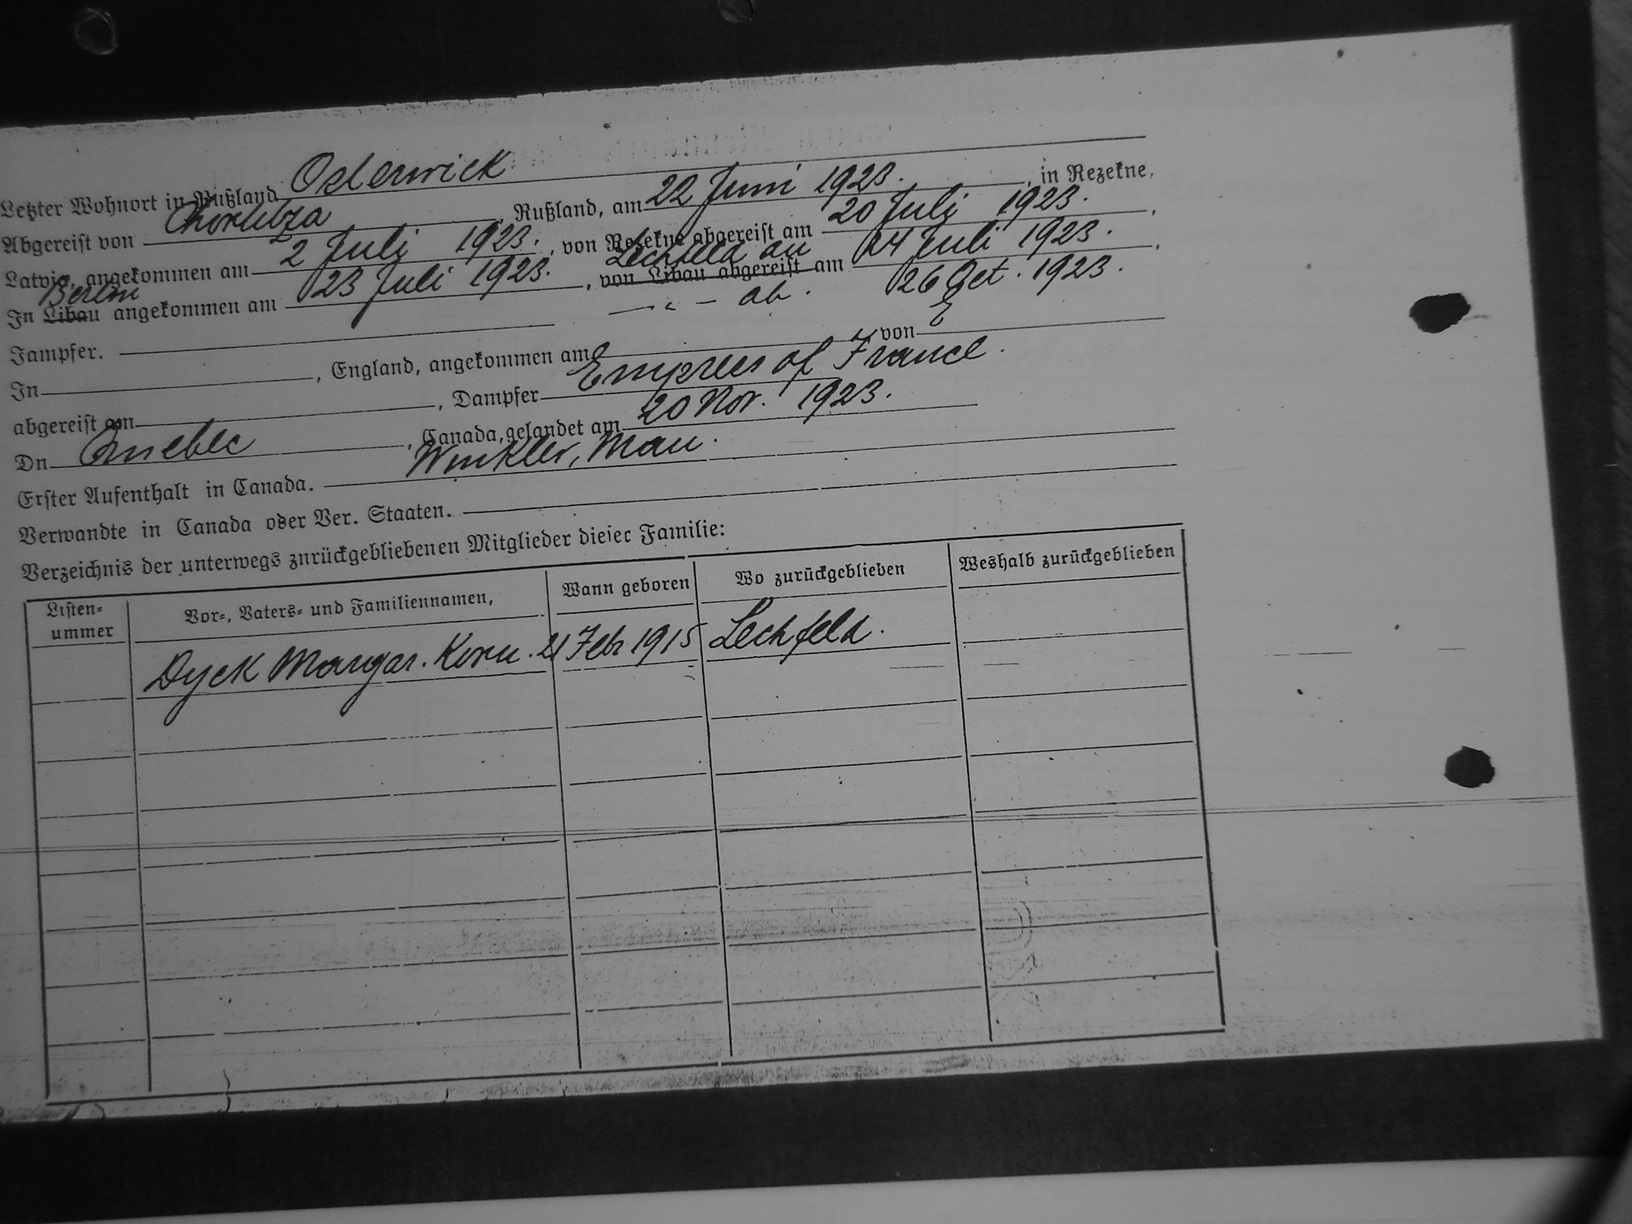 Letzter Wohnort in Rußland Osterwick
Abgereist von Chortitza, Rußland, am 22 Juni 1923., in Rezekne,
Latvia, angekommen am 2 Juli 1923., von Rezekne abgereist am 20 Juli 1923.,
In Libau Berlin angekommen am 23 Juli 1923., von Libau abgereist Lechfeld an am 24 Juli 1923.,
— " — ab. 26 Oct. 1923.
Jampfer.
In, England, angekommen am von
abgereist am, Dampfer Empress of France.
Dn Quebec, Canada, gelandet am 20 Nov. 1923.
Erster Aufenthalt in Canada. Winkler, Man.
Verwandte in Canada oder Ver. Staaten.
Verzeichnis der unterwegs zurückgebliebenen Mitglieder dieser Familie:
Listen-ummer Vor-, Vaters- und Familiennamen, Wann geboren Wo zurückgeblieben Weshalb zurückgeblieben
Dyck Margar. Korn. 21 Feb 1915 Lechfeld.